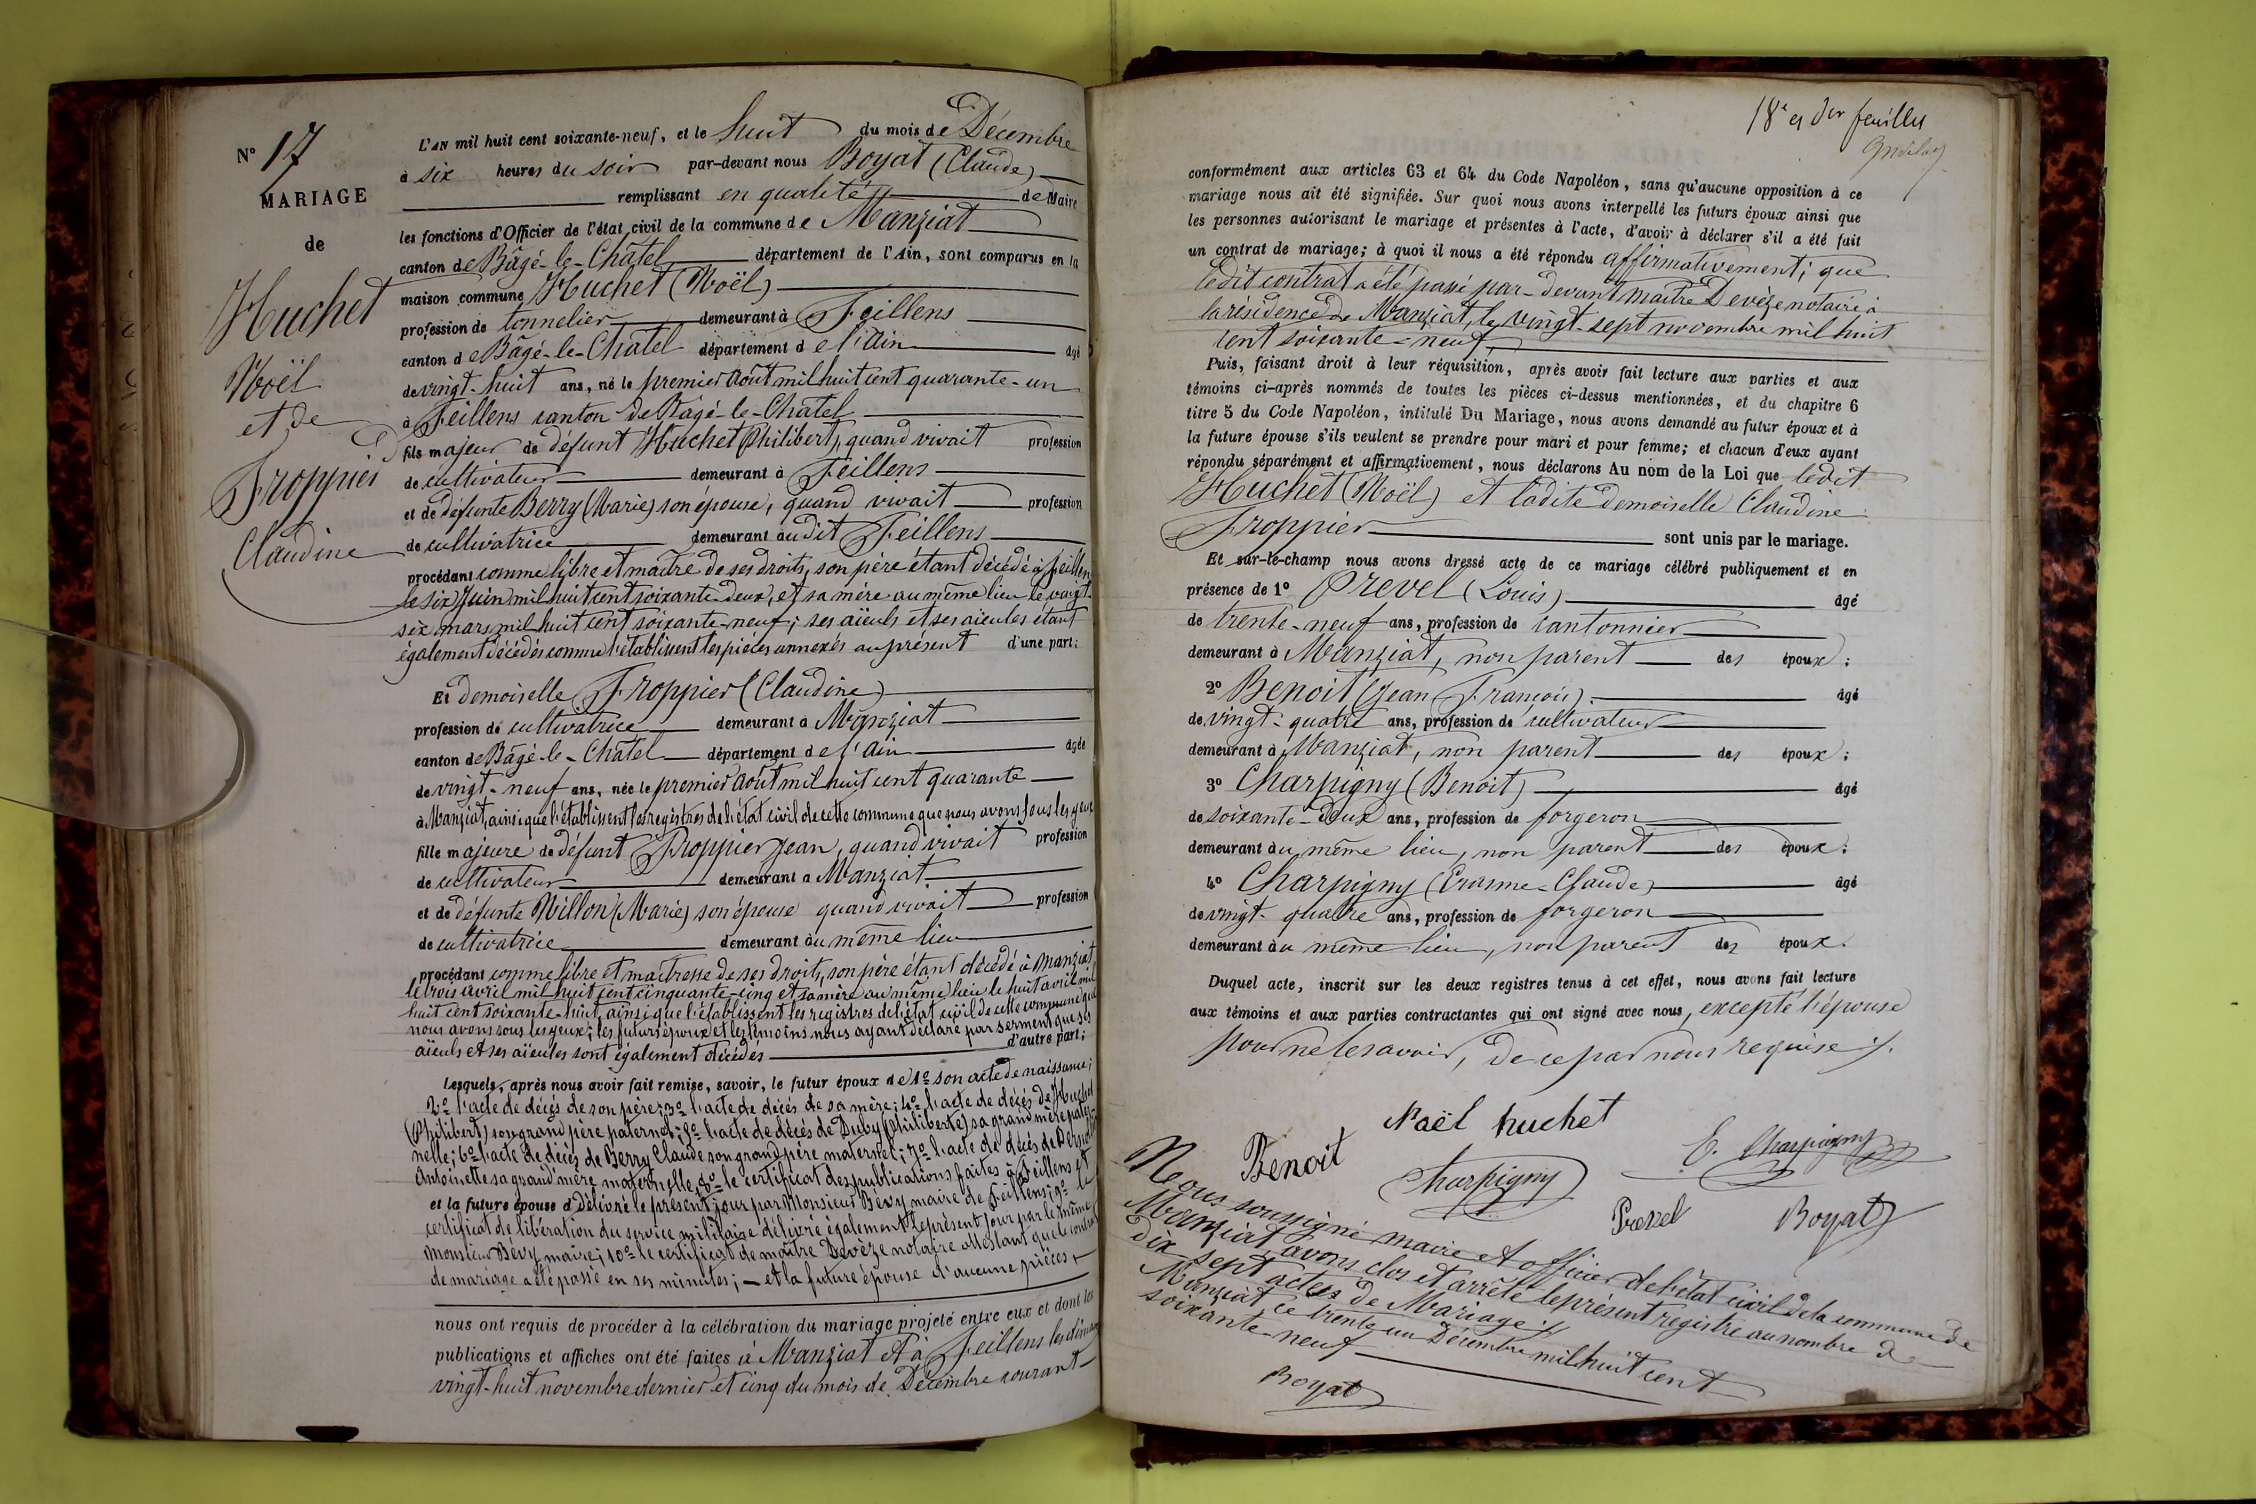 N° 17
MARIAGE
de
Huchet
Noël
et de
Froppier
Claudine
L'AN mil huit cent soixante-neuf, et le huit du mois de Décembre
à six heures du soir par-devant nous Boyat (Claude)
remplissant en qualité de Maire
les fonctions d'Officier de l'état civil de la commune de Manziat
canton de Bâgé-le-Châtel département de l'Ain, sont comparus en la
maison commune Huchet (Noël)
profession de tonnelier demeurant à Feillens
canton de Bâgé-le-Châtel département de l'Ain âgé
de vingt-huit ans, né le premier août mil huit cent quarante-un
à Feillens canton de Bâgé-le-Châtel
fils majeur de défunt Huchet Philibert, quand vivait profession
de cultivateur demeurant à Feillens
et de défunte Berry (Marie) son épouse, quand vivait profession
de cultivatrice demeurant audit Feillens
procédant comme libre et maître de ses droits, son père étant décédé à Feillens
le six Juin mil huit cent soixante-deux, et sa mère au même lieu le vingt-
six mars mil huit cent soixante-neuf; ses aïeuls et ses aïeules étant
également décédés comme l'établissent les pièces annexés au présent d'une part;
Et demoiselle Froppier (Claudine)
profession de cultivatrice demeurant à Manziat
canton de Bâgé-le-Châtel département de l'Ain âgée
de vingt-neuf ans, née le premier août mil huit cent quarante
à Manziat, ainsi que l'établissent les registres de l'état civil de cette commune que nous avons sous les yeux
fille majeure de défunt Froppier Jean, quand vivait profession
de cultivateur demeurant à Manziat
et de défunte Nillon (Marie) son épouse quand vivait profession
de cultivatrice demeurant au même lieu
procédant comme libre et maîtresse de ses droits, son père étant décédé à Manziat
le trois avril mil huit cent cinquante-cinq et sa mère au même lieu le huit avril mil
huit cent soixante-huit, ainsi que l'établissent les registres de l'état civil de cette commune que
nous avons sous les yeux; les futurs époux et les témoins nous ayant déclaré par serment que ses
aïeuls et ses aïeules sont également décédés d'autre part;
Lesquels, après nous avoir fait remise, savoir, le futur époux de 1° son acte de naissance;
2° l'acte de décès de son père; 3° l'acte de décès de sa mère; 4° l'acte de décès de Huchet
(Philibert) son grand père paternel; 5° l'acte de décès de Duby (Philiberte) sa grand mère pater-
nelle; 6° l'acte de décès de Berry Claude son grand père maternel; 7° l'acte de décès de
Antoinette sa grand mère maternelle, 8° le certificat des publications faites à Feillens et
et la future épouse d délivré le présent jour par Monsieur Bévy maire de Feillens; 9° le
certificat de libération du service militaire délivré également le présent jour par le même
Monsieur Bévy, maire; 10° le certificat de maître Devèze notaire attestant que le contrat
de mariage a été passé en ses minutes; — et la future épouse d'aucune pièces
nous ont requis de procéder à la célébration du mariage projeté entre eux et dont les
publications et affiches ont été faites à Manziat et à Feillens les
vingt-huit novembre dernier et cinq du mois de Décembre courant
18e et der feuillet
conformément aux articles 63 et 64 du Code Napoléon, sans qu'aucune opposition à ce
mariage nous ait été signifiée. Sur quoi nous avons interpellé les futurs époux ainsi que
les personnes autorisant le mariage et présentes à l'acte, d'avoir à déclarer s'il a été fait
un contrat de mariage; à quoi il nous a été répondu affirmativement; que
ledit contrat a été passé par-devant maître Devèze notaire à
la résidence de Manziat, le vingt-sept novembre mil huit
cent soixante-neuf
Puis, faisant droit à leur réquisition, après avoir fait lecture aux parties et aux
témoins ci-après nommés de toutes les pièces ci-dessus mentionnées, et du chapitre 6
titre 5 du Code Napoléon, intitulé Du Mariage, nous avons demandé au futur époux et à
la future épouse s'ils veulent se prendre pour mari et pour femme; et chacun d'eux ayant
répondu séparément et affirmativement, nous déclarons Au nom de la Loi que ledit
Huchet (Noël) et ladite demoiselle Claudine
Froppier sont unis par le mariage.
Et sur-le-champ nous avons dressé acte de ce mariage célébré publiquement et en
présence de 1° Prevel (Louis) âgé
de trente-neuf ans, profession de cantonnier
demeurant à Manziat, non parent des époux;
2° Benoit (Jean François) âgé
de vingt-quatre ans, profession de cultivateur
demeurant à Manziat, non parent des époux;
3° Charpigny (Benoit) âgé
de soixante-deux ans, profession de forgeron
demeurant au même lieu, non parent des époux;
4° Charpigny (Erasme-Claude) âgé
de vingt-quatre ans, profession de forgeron
demeurant au même lieu, non parent des époux.
Duquel acte, inscrit sur les deux registres tenus à cet effet, nous avons fait lecture
aux témoins et aux parties contractantes qui ont signé avec nous, excepté l'épouse
pour ne le savoir, de ce par nous requise ./.
Noël huchet
Benoit Charpigny E. Charpigny
Prevel Boyat
Nous soussigné maire et officier de l'état civil de la commune de
Manziat, avons clos et arrêté le présent registre au nombre de
dix-sept actes de Mariage ./.
Manziat, ce trente un Décembre mil huit cent
soixante-neuf
Boyat